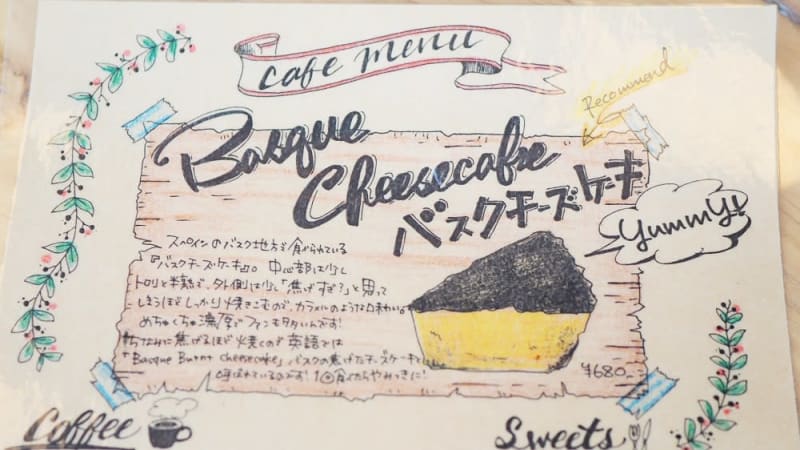 cafe menu
Recommend
Basque
Cheesecake
バスクチーズケーキ
Yummy!
スペインのバスク地方で食べられている
『バスクチーズケーキ』。中心部は少し
トロリと半熟で、外側は少し「焦げすぎ?」と思って
しまうほどしっかり焼きこむので、カラメルのような味わい。
めちゃくちゃ濃厚でファンも多いんです!
ちなみに焦げるほど焼くので英語では
「Basque Burnt Cheesecake」バスクの焦げたチーズケーキと
呼ばれているのです! 1回食べたらやみつきに!
¥680-
Coffee
Sweets